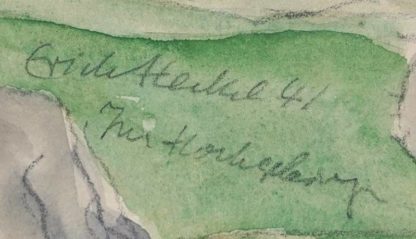 Erich Heckel 41
Im Hochgebirge